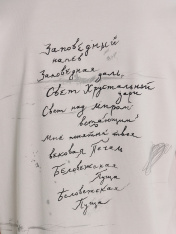 Заповедный
напев
Заповедная даль,
Свет Хрустальный
зари
Свет над миром
встающий
Мне понятна твоя
вековая Печаль
Беловежская
Пуща
Беловежская
Пуща